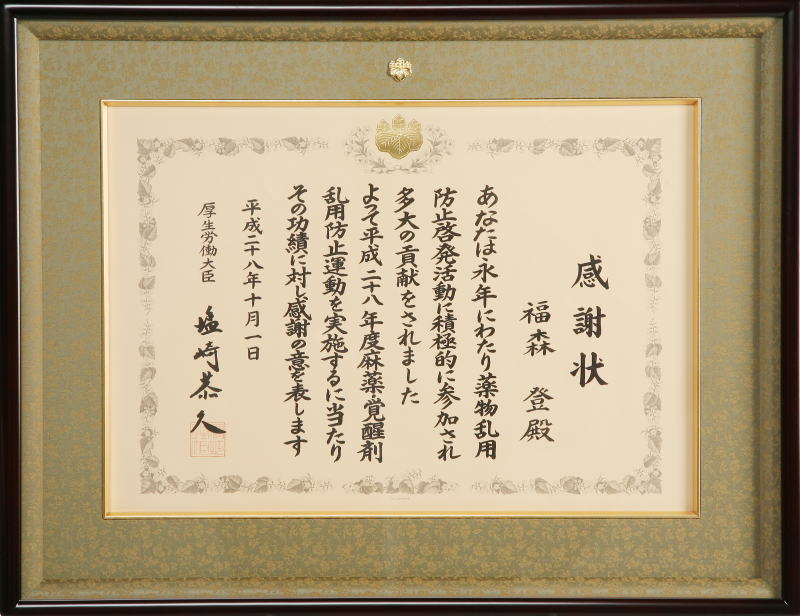 感謝状
福森 登殿
あなたは永年にわたり薬物乱用
防止啓発活動に積極的に参加され
多大の貢献をされました
よって平成二十八年度麻薬・覚醒剤
乱用防止運動を実施するに当たり
その功績に対し感謝の意を表します
平成二十八年十月一日
厚生労働大臣 塩崎恭久